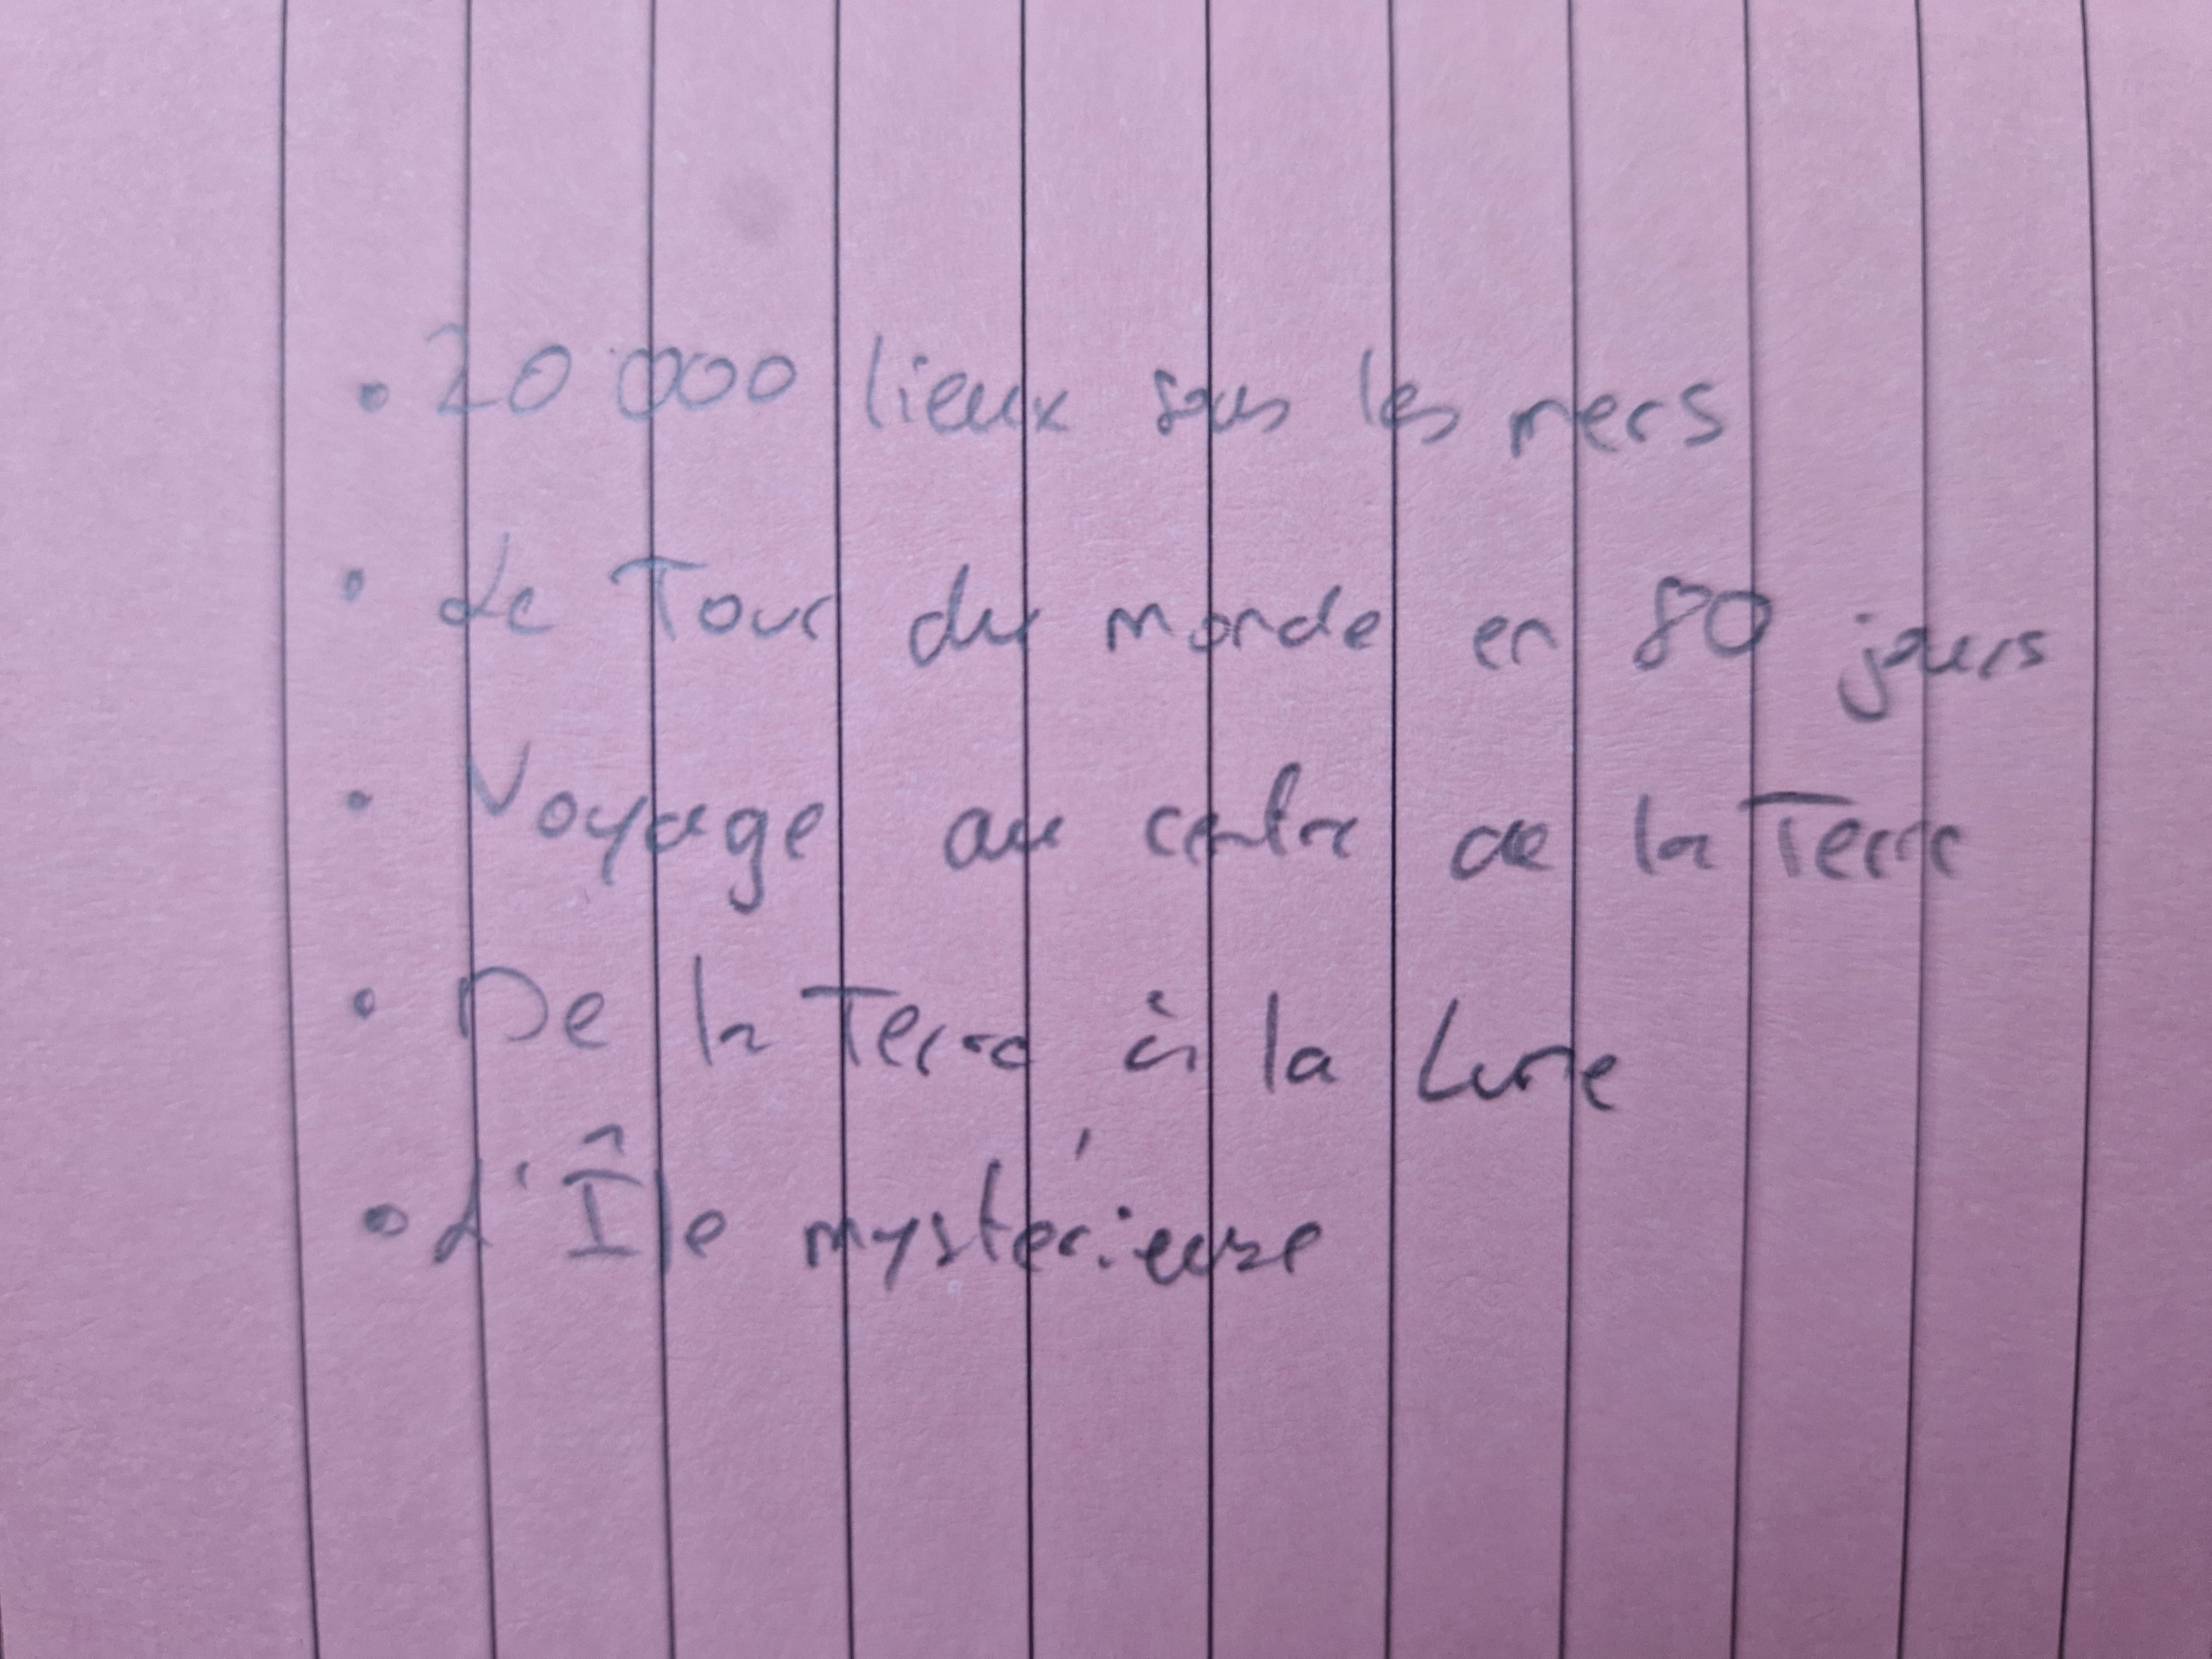 • 20 000 lieux sous les mers
• Le Tour du monde en 80 jours
• Voyage au centre de la Terre
• De la Terre à la Lune
• L'Île mystérieuse